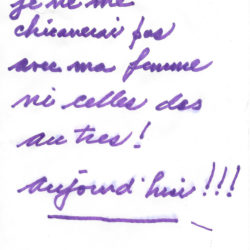 je ne me
chicanerai pas
avec ma femme
ni celles des
autres!
aujourd'hui!!!